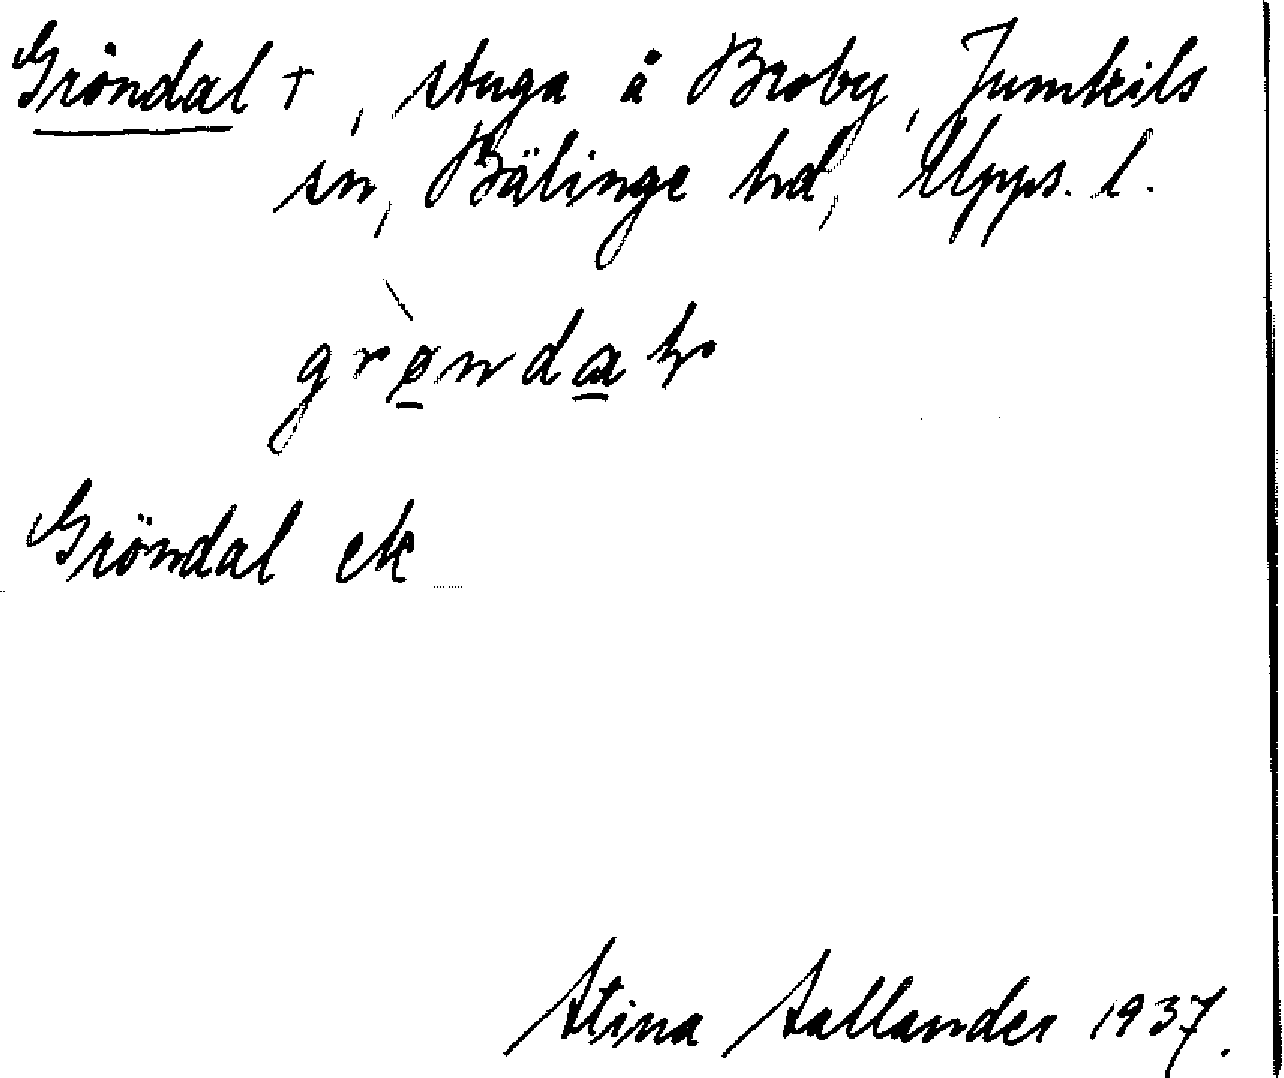 Gröndal †, stuga å Broby, Jumkils
sn, Bälinge hd, Upps. l.
grøndaɫ
Gröndal ek
Stina Sallander 1937.